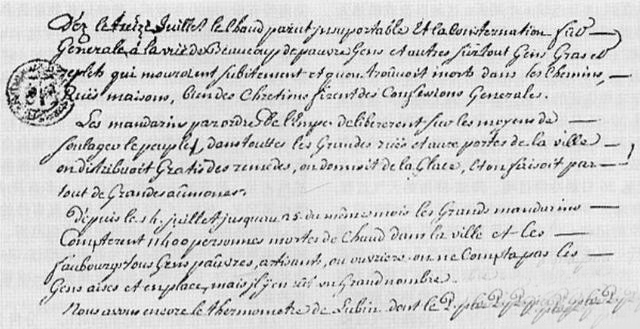 Dez le treize Juillet le chaud parut insuportable Et la consternation fut
Generale, à la vuë de Beaucoup de pauvre Gens et autres surtout Gens Gras et
replets qui mouroient subitement et quon trouvoit morts dans les Chemins,
Ruës maisons, bien des Chretiens firent des Confessions Generales.
Les mandarins par ordre de l'Emper delibererent sur les moyens de
soulager le peuple, dans touttes les Grandes ruës et aux portes de la ville
on distribuoit Gratis des remedes, on donnoit de la Glace, et on faisoit par
tout de Grandes aumones.
Depuis le 14 juillet jusquau 25 du même mois les Grands mandarins
Compterent 11400 personnes mortes de Chaud dans la ville et les
fauxbourgs tous Gens pauvres, artisant, ou ouvriers on ne Compta pas les
Gens aises et en place, mais il y en eut un Grand nombre.
Nous avons encore le thermometre de Lubin dont le